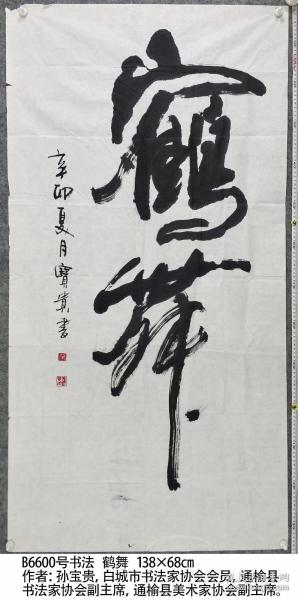 鶴舞
辛卯夏月寶貴書
B6600号书法 鹤舞 138×68cm
作者：孙宝贵，白城市书法家协会会员，通榆县
书法家协会副主席，通榆县美术家协会副主席。